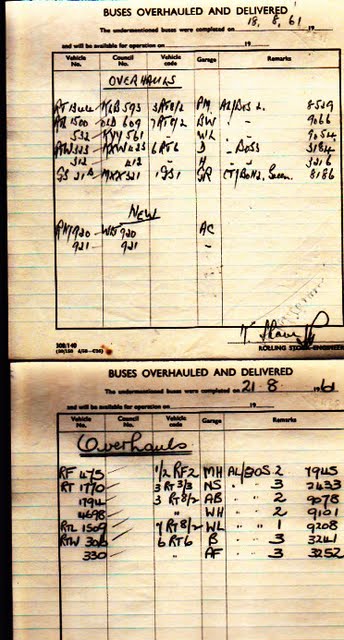 BUSES OVERHAULED AND DELIVERED
The undermentioned buses were completed on 18. 8. 61 19
and will be available for operation on 19
Vehicle No. Council No. Vehicle code Garage Remarks
OVERHAULS
RT KLB 593 3RT8/2 PM AL/DOS 2. 8529
1500 OLD 609 7RT8/2 BW " 9066
532 KYY 561 " WL " 9054
RTW 423 KXW 423 6RT6 D " DOSS 3184
212 212 " H " 3216
GS 21 MXX 321 1GS1 GR CT/BOX2. Green. 8186
NEW
RM 920 WLT 920 AC
921 921 "
ROLLING STOCK ENGINEER
BUSES OVERHAULED AND DELIVERED
The undermentioned buses were completed on 21 - 8 - 1961
and will be available for operation on 19
Vehicle No. Council No. Vehicle code Garage Remarks
Overhauls
RF 475 1/2 RF2 MH AL/DOS 2 7945
RT 1770 3 RT3/3 NS " " 3 7433
1794 3 RT8/2 AB " " 2 9078
4698 " WH " " 2 9101
RTL 1509 7 RT8/2 WL " " 1 9208
RTW 308 6 RT6 B " " 3 3241
330 " AF " " 3 3252